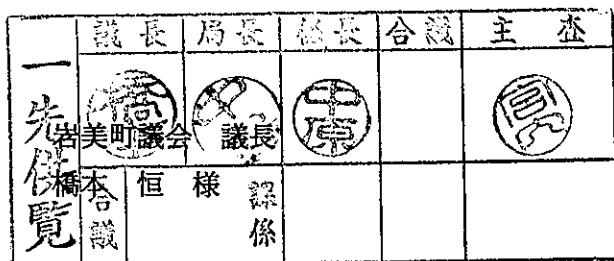 議長 局長 係長 合議 主査
一先供覧
岩美町議会 議長
橋本 恒 様
合議
課係